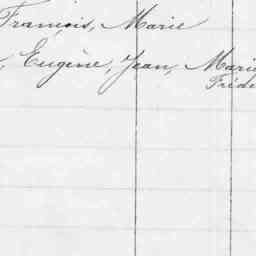 François, Marie
, Eugène, Jean, Marie
Fréde